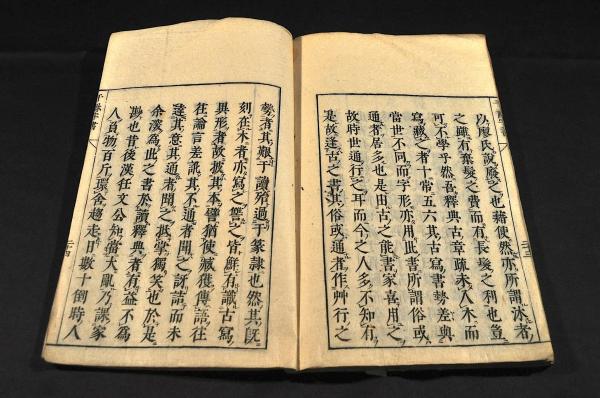 以廖氏說廢之也藉使然亦所謂沐者
之雖有棄髮之費而有長髮之利也豈
可不學乎然吾釋典古章疏未入木而
寫藏之者十常五六其古寫書勢差與
當世不同而字形亦用此書所謂俗或
通者居多也是由古之能書家喜用之
故時世通行之耳而今之人多不知有
是故逢古之書其俗或通者作艸行之
勢者其艱于讀殆過于篆隸也然其既
刻在木者亦寫之讐之皆鮮有識古寫
與形者故披其本譬猶使臧獲傳語往
往論言差訛其不通者聞之訝語而未
逹其意其通者聞之抵掌獨笑也於是
余淺爲此之書於讀釋典者有益不爲
尠也昔後漢任文公知當大亂乃課家
人負物百斤環舍趨走日數十倒時人